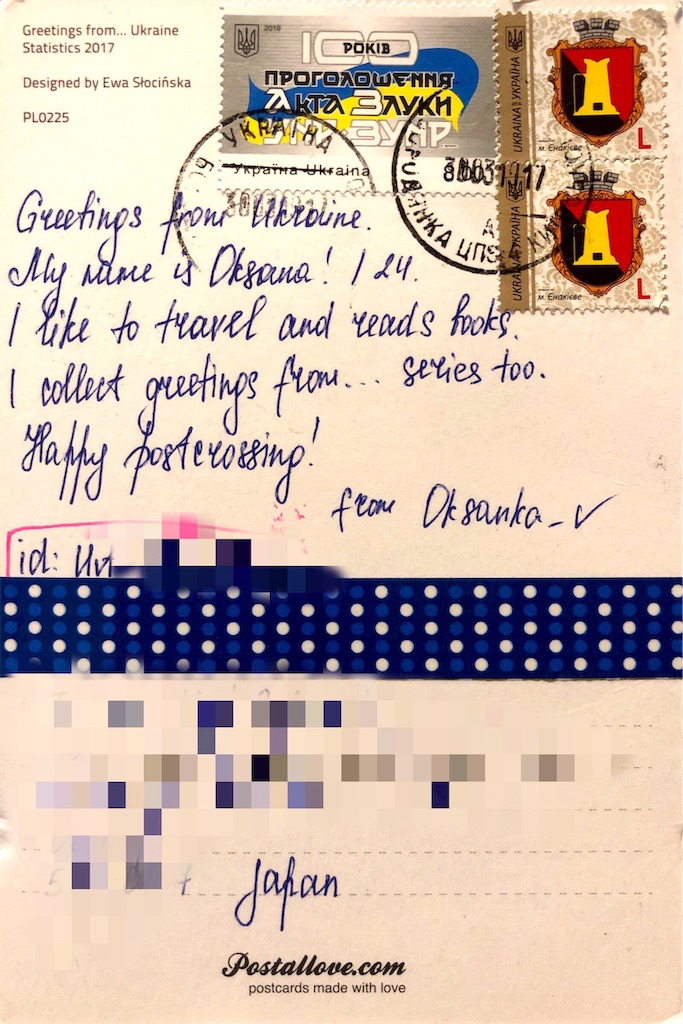 Greetings from... Ukraine
Statistics 2017
Designed by Ewa Słocińska
PL0225
2019
100
РОКІВ
ПРОГОЛОШЕННЯ
АКТА ЗЛУКИ
УНР-ЗУНР
Україна-Ukraina
UKRAINA УКРАЇНА
м. Єнакієве
L
UKRAINA УКРАЇНА
м. Єнакієве
L
УКРАЇНА
Greetings from Ukraine.
My name is Oksana! I 24.
I like to travel and reads books.
I collect greetings from... series too.
Happy postcrossing!
from Oksanka_v
id:
Japan
Postallove.com
postcards made with love